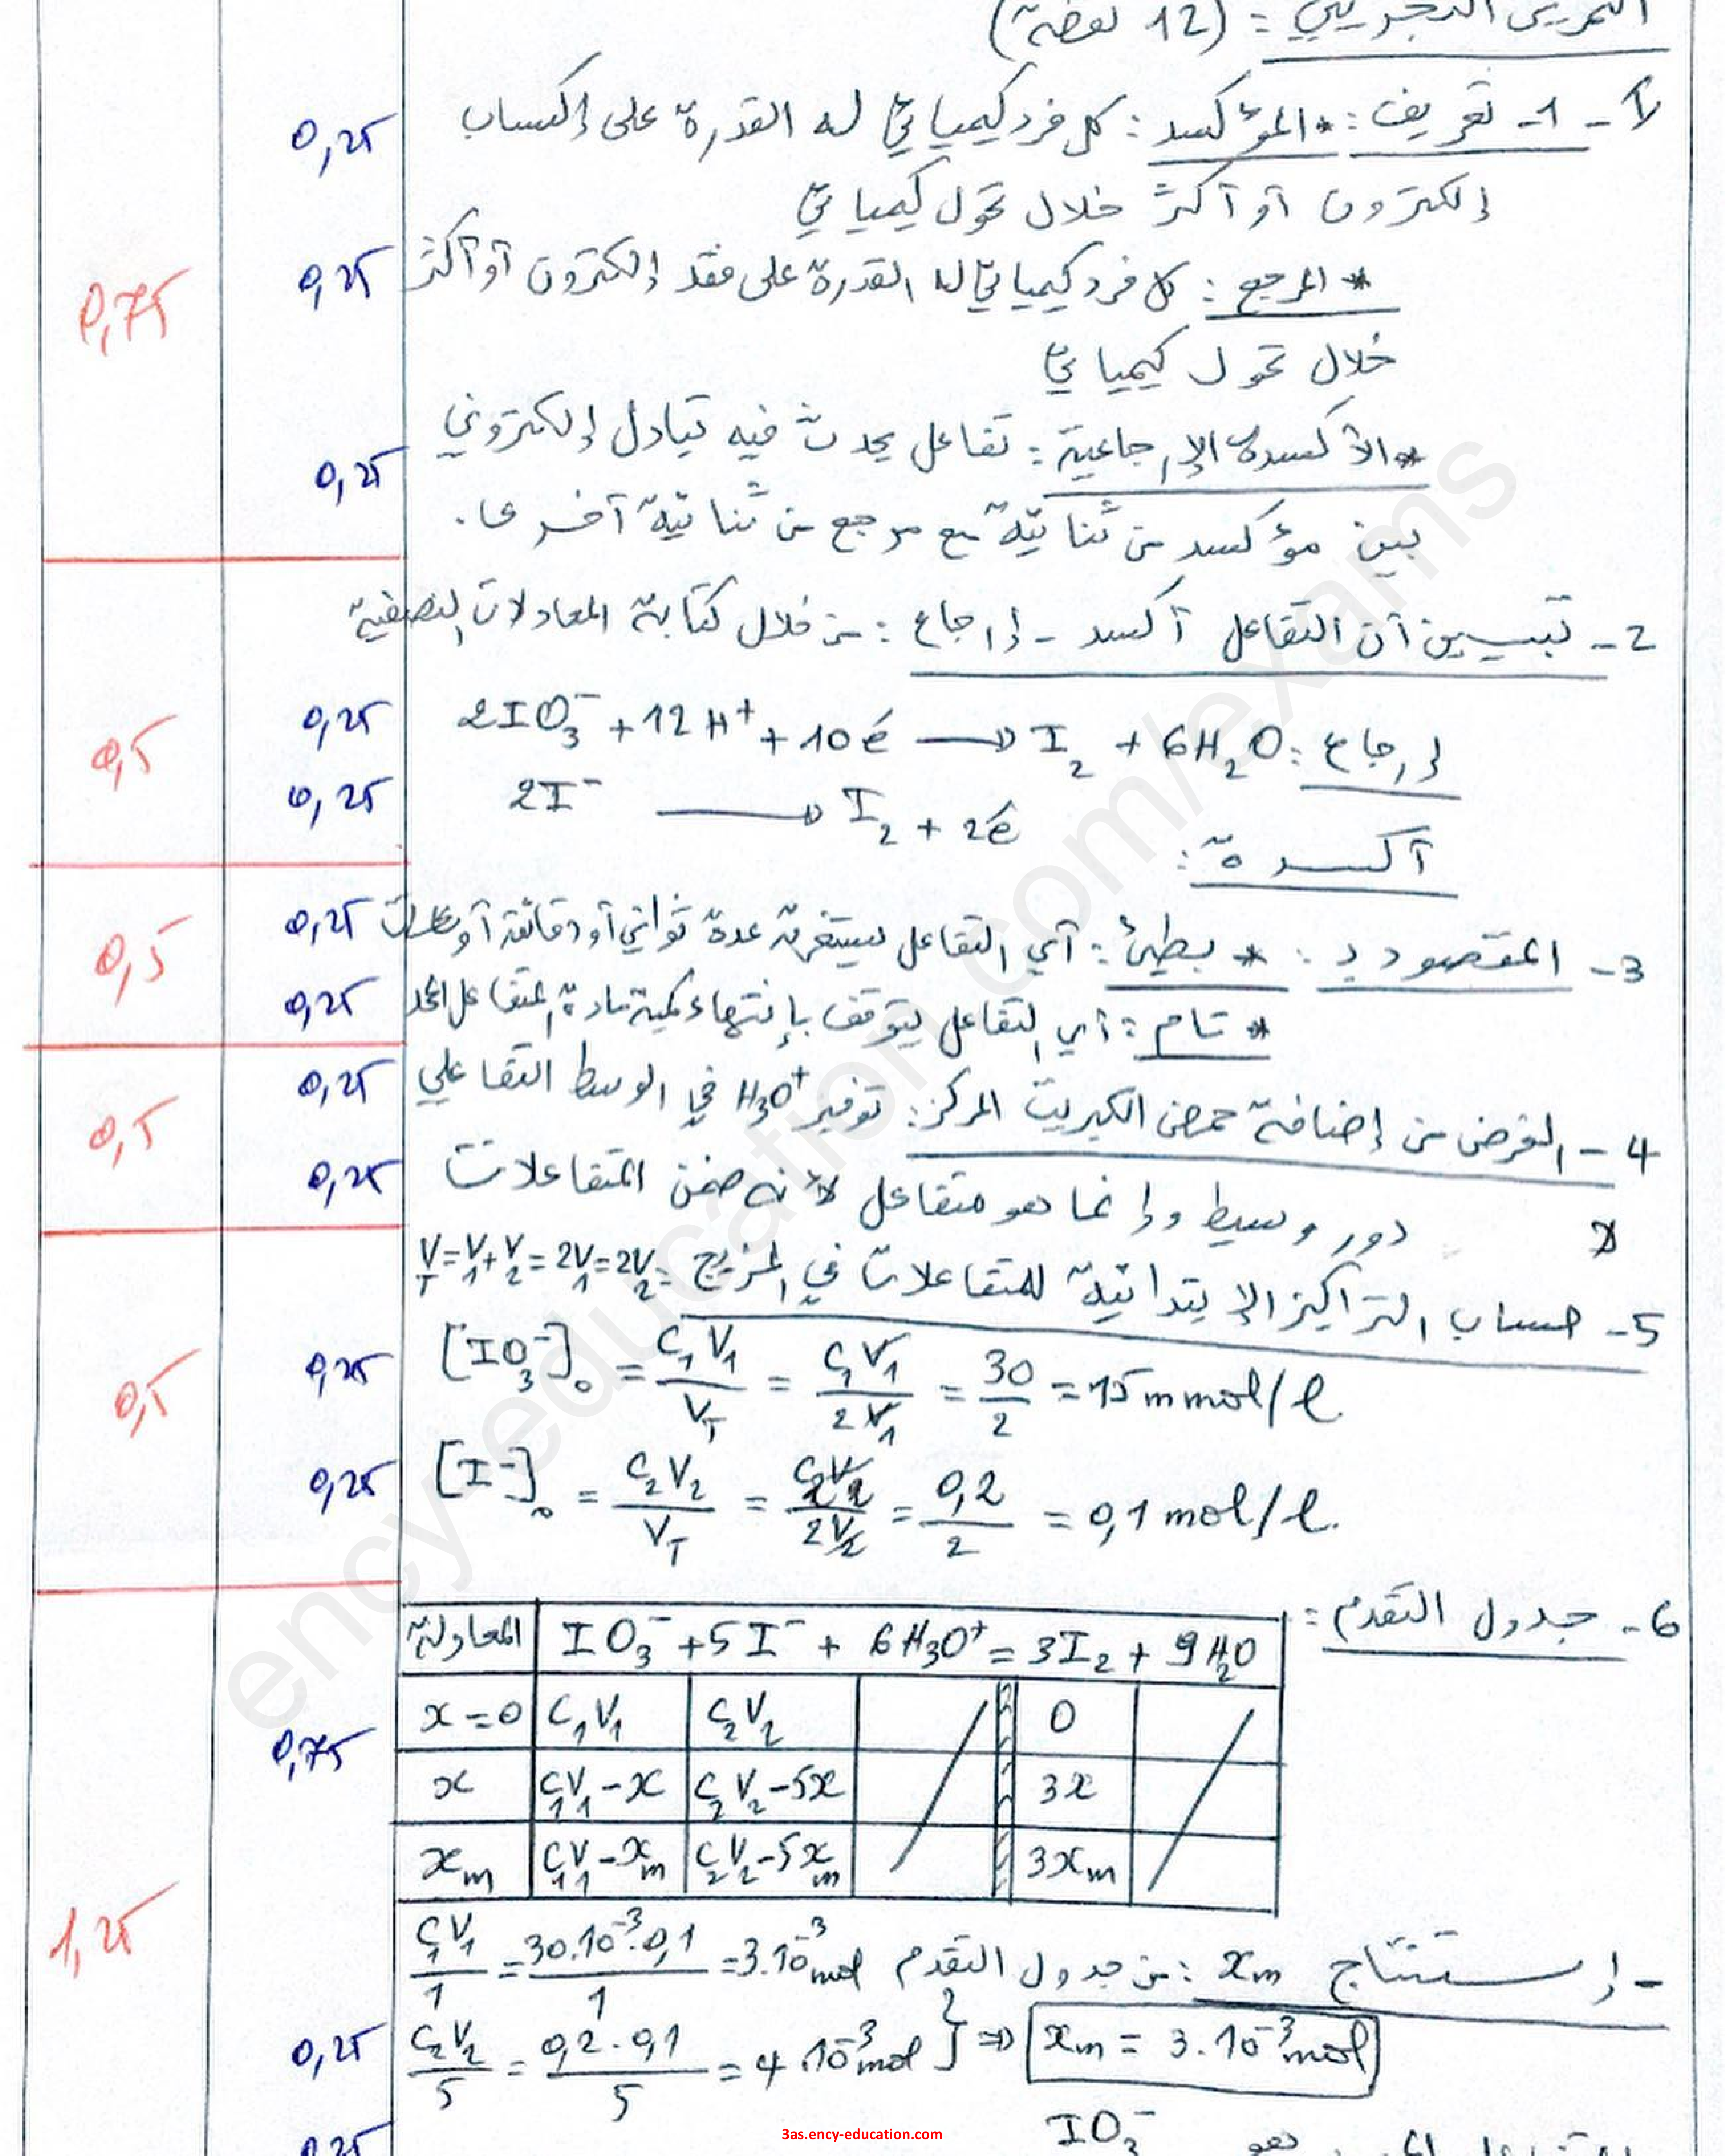 التمرين التجريبي : (12 نقطة)
I - 1- تعريف : * المؤكسد : كل فرد كيميائي له القدرة على إكتساب
0,25
إلكترون أو أكثر خلال تحول كيميائي
* المرجع : كل فرد كيميائي له القدرة على فقد إلكترون أو أكثر
0,25
0,75
خلال تحول كيميائي
* الأكسدة الإرجاعية : تفاعل يحدث فيه تبادل إلكتروني
0,25
بين مؤكسد من ثنائية مع مرجع من ثنائية أخرى.
2- تبيين أن التفاعل أكسدـ إرجاع : من خلال كتابة المعادلات النصفية
إرجاع : 2IO₃⁻ + 12H⁺ + 10é → I₂ + 6H₂O
0,25
0,5
أكسدة : 2I⁻ → I₂ + 2é
0,25
3- المقصود بـ : * بطيئ : أي التفاعل يستغرق عدة ثواني أو دقائق أو ساعات
0,25
0,5
* تام : أي التفاعل يتوقف بإنتهاء كمية مادة المتفاعل المحد
0,25
4- الغرض من إضافة حمض الكبريت المركز : توفير H₃O⁺ في الوسط التفاعلي
0,25
0,5
دور وسيط وإنما هو متفاعل لأنه ضمن المتفاعلات
0,25
5- حساب التراكيز الإبتدائية للمتفاعلات في المزيج : V_T = V₁ + V₂ = 2V₁ = 2V₂
[IO₃⁻]₀ = C₁V₁/V_T = C₁V₁/2V₁ = 30/2 = 15 mmol/l.
0,25
0,5
[I⁻]₀ = C₂V₂/V_T = C₂V₂/2V₂ = 0,2/2 = 0,1 mol/l.
0,25
6- جدول التقدم :
المعادلة IO₃⁻ + 5I⁻ + 6H₃O⁺ = 3I₂ + 9H₂O
x = 0 C₁V₁ C₂V₂ 0
0,75
x C₁V₁ - x C₂V₂ - 5x 3x
x_m C₁V₁ - x_m C₂V₂ - 5x_m 3x_m
1,25
- إستنتاج x_m : من جدول التقدم C₁V₁/1 = 30.10⁻³.0,1/1 = 3.10⁻³ mol
C₂V₂/5 = 0,2.0,1/5 = 4.10⁻³ mol } ⇒ x_m = 3.10⁻³ mol
0,25
هو IO₃⁻
0,25
ency-education.com/exams
3as.ency-education.com